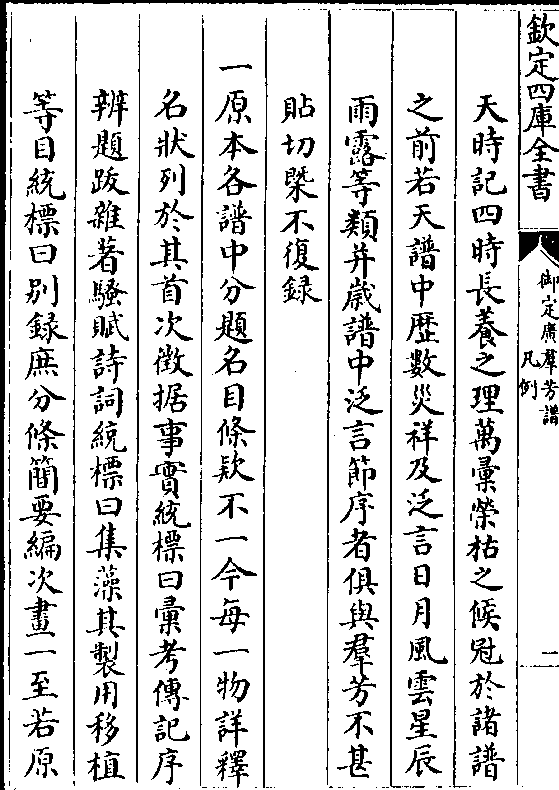 欽定四庫全書
御定廣羣芳譜
凡例
一
天時記四時長養之理萬彙榮枯之候冠於諸譜
之前若天譜中歴數災祥及泛言日月風雲星辰
雨露等類并歲譜中泛言節序者俱與羣芳不甚
貼切槩不復録
一原本各譜中分題名目條欵不一今每一物詳釋
名狀列於其首次徴据事實統標曰彙考傳記序
辨題跋雜著騷賦詩詞統標曰集藻其製用移植
等目統標曰别録庶分條簡要編次畫一至若原